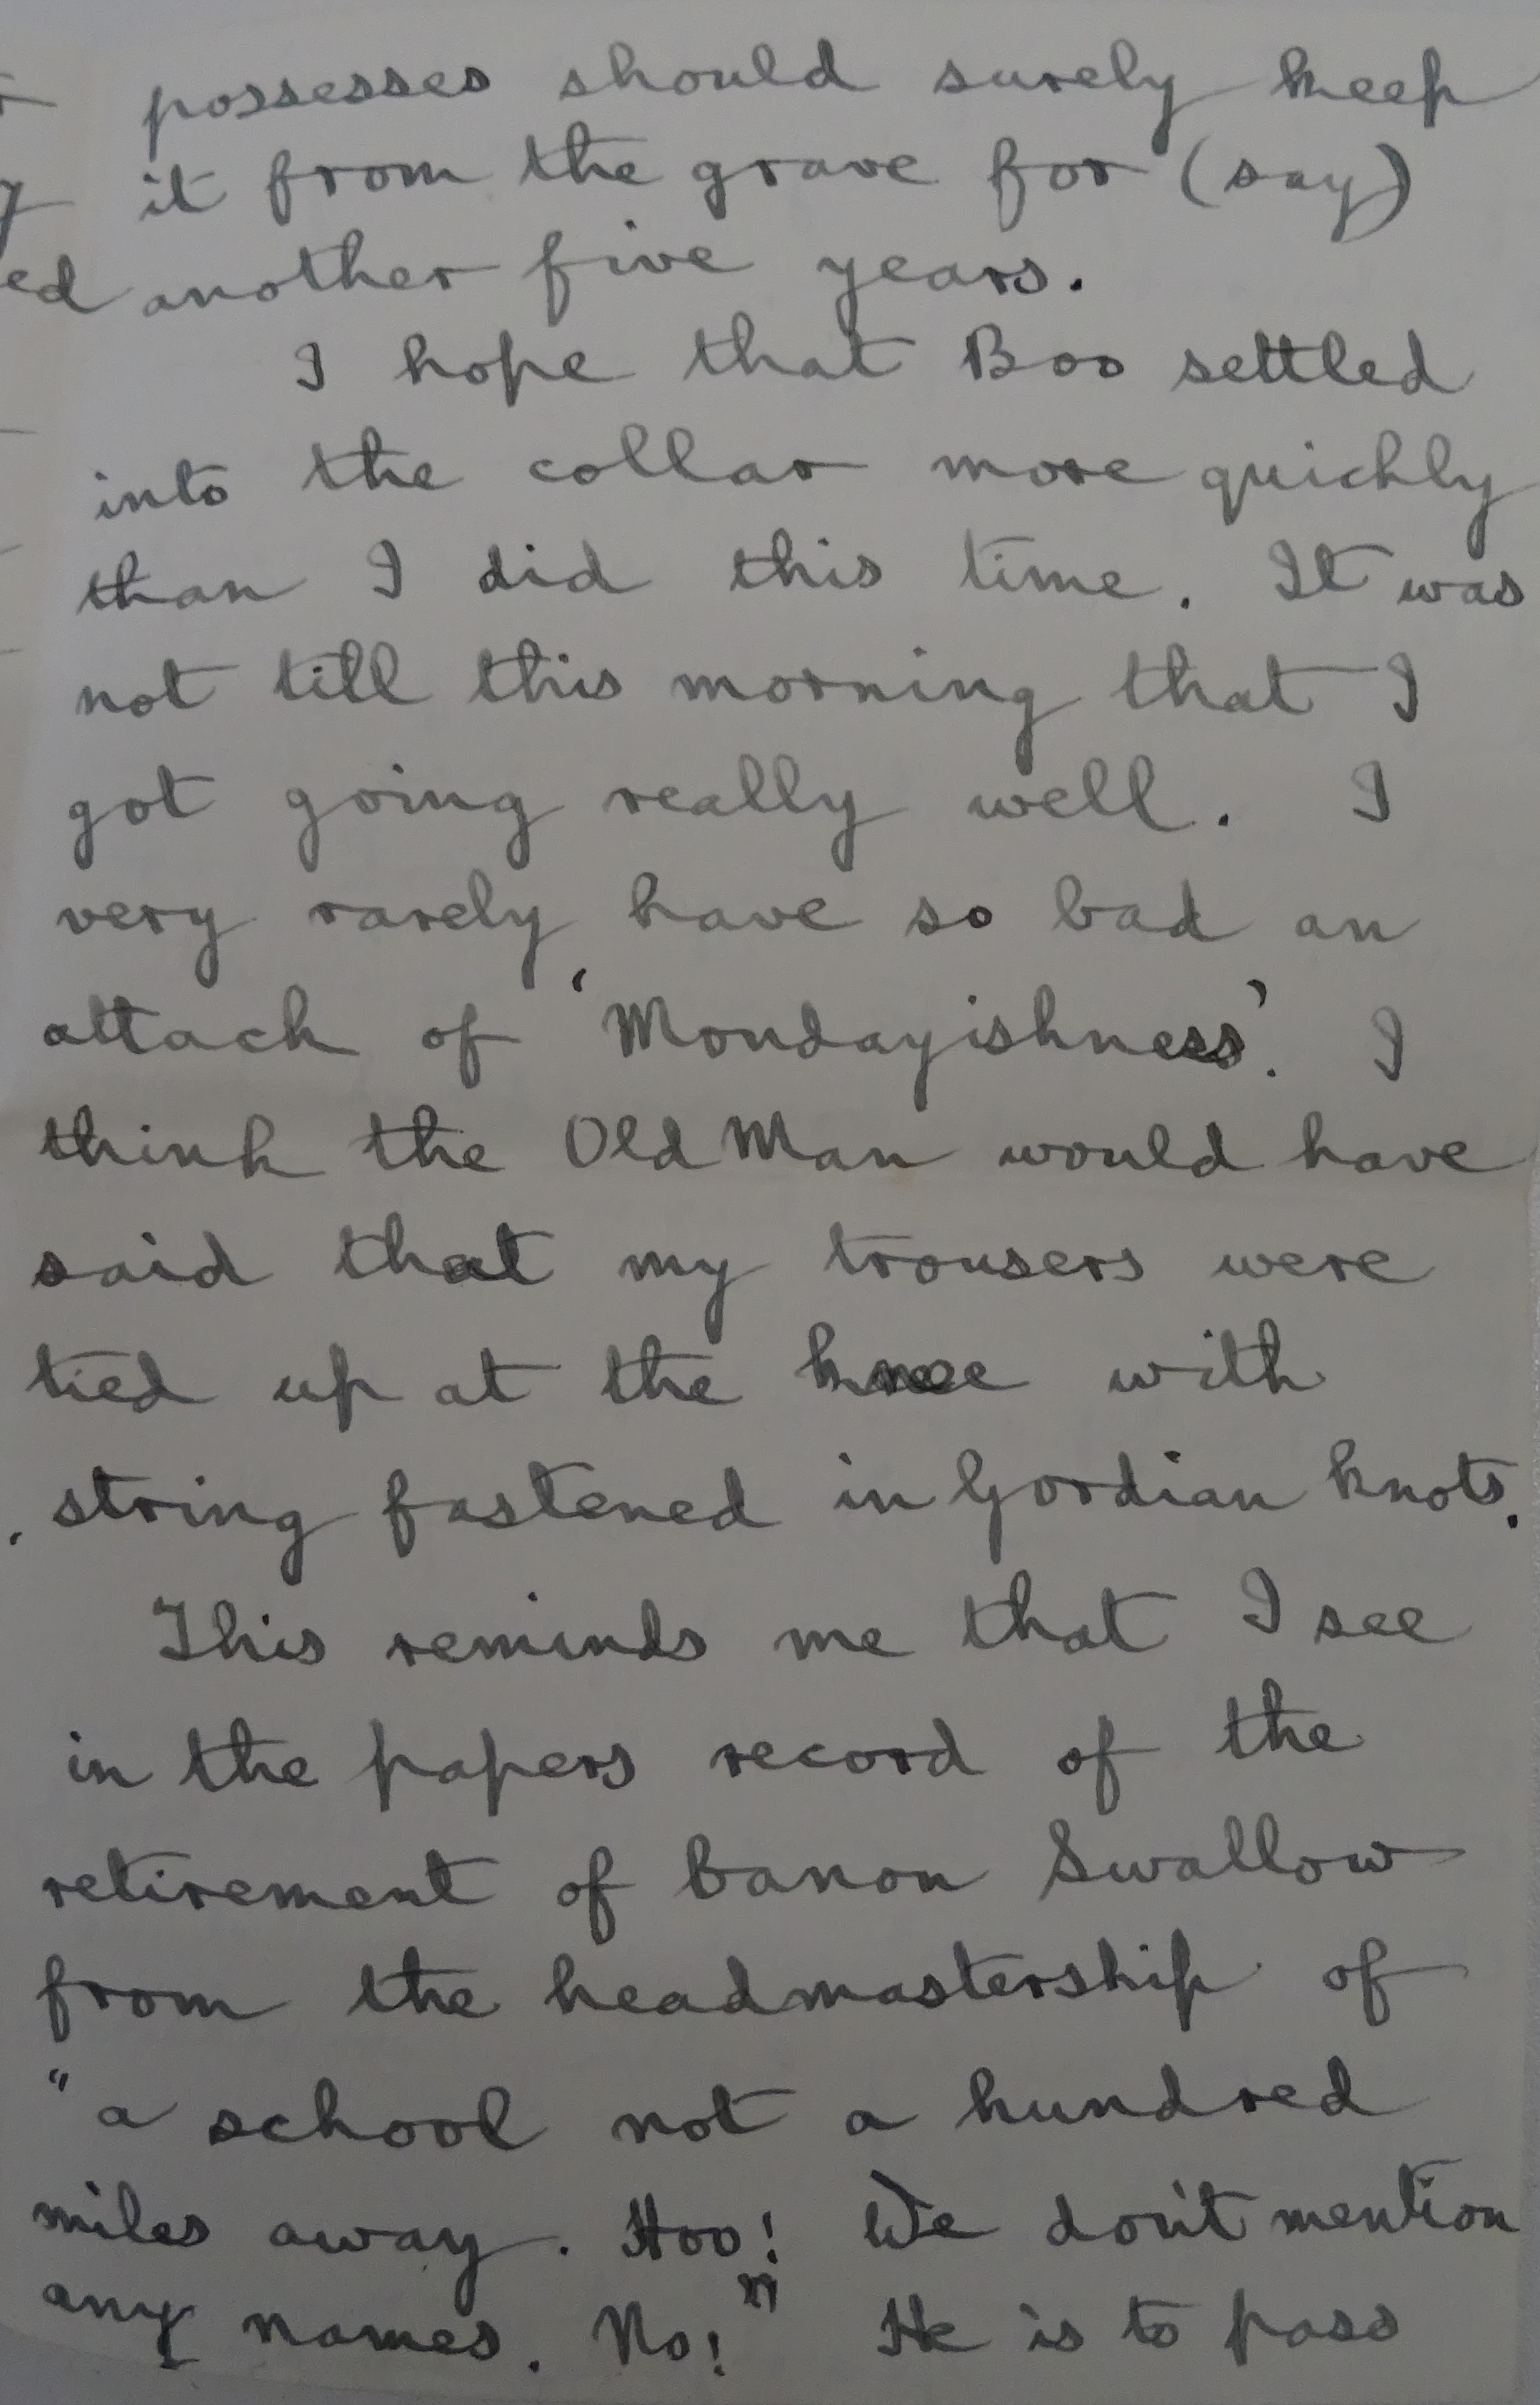 possesses should surely keep
it from the grave for (say)
ed another five years.
I hope that Boo settled
into the collar more quickly
than I did this time. It was
not till this morning that I
got going really well. I
very rarely have so bad an
attack of 'Mondayishness'. I
think the Old Man would have
said that my trousers were
tied up at the knee with
string fastened in Gordian knots.
This reminds me that I see
in the papers record of the
retirement of Canon Swallow
from the headmastership of
"a school not a hundred
miles away. Hoo! We don't mention
any names. No!" He is to pass